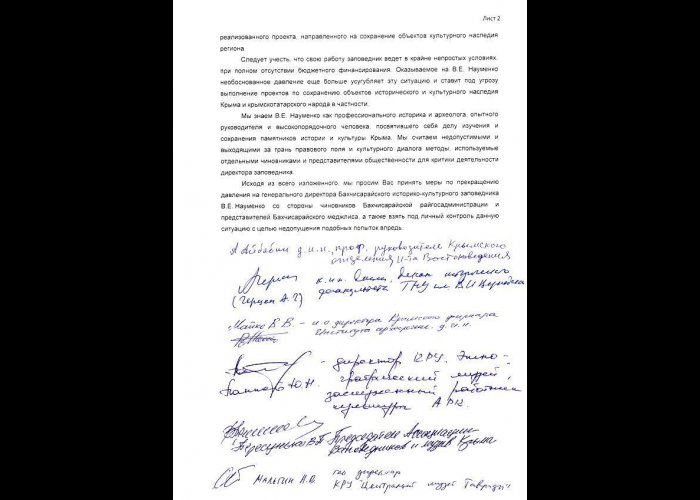 Лист 2
реализованного проекта, направленного на сохранение объектов культурного наследия
региона.
Следует учесть, что свою работу заповедник ведет в крайне непростых условиях,
при полном отсутствии бюджетного финансирования. Оказываемое на В.Е. Науменко
необоснованное давление еще больше усугубляет эту ситуацию и ставит под угрозу
выполнение проектов по сохранению объектов исторического и культурного наследия
Крыма и крымскотатарского народа в частности.
Мы знаем В.Е. Науменко как профессионального историка и археолога, опытного
руководителя и высокопорядочного человека, посвятившего себя делу изучения и
сохранения памятников истории и культуры Крыма. Мы считаем недопустимыми и
выходящими за грань правового поля и культурного диалога методы, используемые
отдельными чиновниками и представителями общественности для критики деятельности
директора заповедника.
Исходя из всего изложенного, мы просим Вас принять меры по прекращению
давления на генерального директора Бахчисарайского историко-культурного заповедника
В.Е. Науменко со стороны чиновников Бахчисарайской райгосадминистрации и
представителей Бахчисарайского меджлиса, а также взять под личный контроль данную
ситуацию с целью недопущения подобных попыток впредь.
А.Айбабин д.и.н., проф. руководитель Крымского
отделения И-та Востоковедения
к.и.н. декан исторического
(Герцен А.Г.) факультета ТНУ им В.И.Вернадского
Майко В.В. - и.о. директора Крымского филиала
Института археологии. д.и.н.
- директор КРУ. Этно-
графический музей,
заслуженный работник
культуры АРК.
Председатель Ассоциации
заповедников и музеев Крыма
Мальгин А.В. ген директор
КРУ "Центральный музей Тавриды"